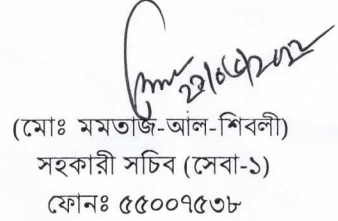 (মোঃ মমতাজ-আল-শিবলী)
সহকারী সচিব (সেবা-১)
ফোনঃ ৫৫০০৭৫৩৮